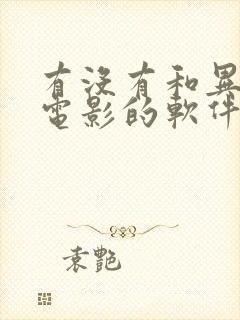 有沒有和異
電影的軟件
袁艷